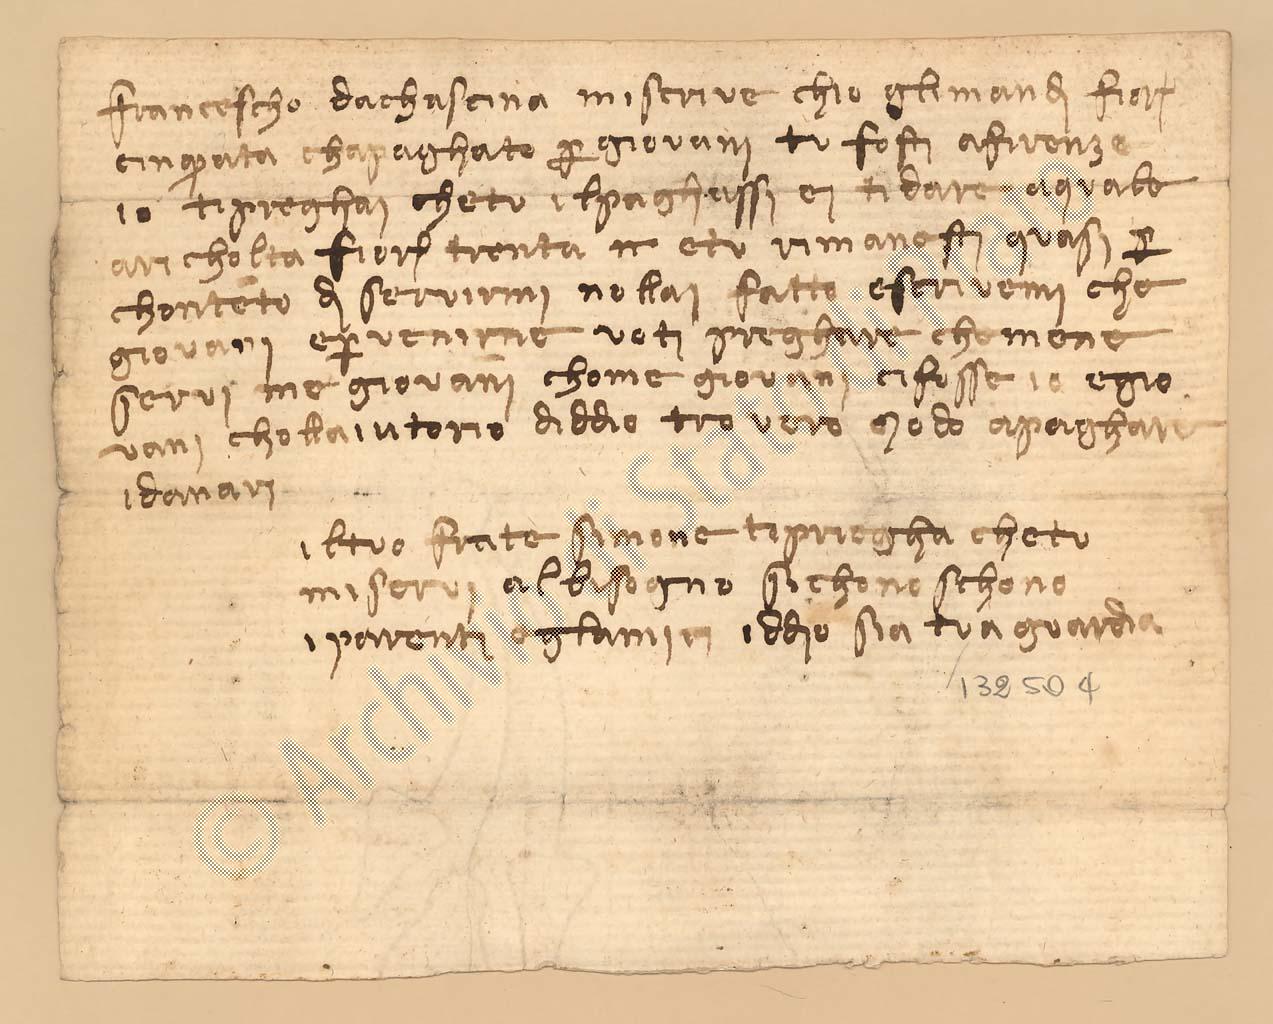 francescho dachascina miscrive chio glimandj fior
cinqvata chapaghato p giovanj tv fostj afirenze
io tipreghaj chetv ilpaghassj ej tidare aqvalo
aricholta fior trenta n etv rimanestj qvasj p
chontēto dj servirmj nollaj fatto escrivemj che
giovanj epvenirne votj preghare chemene
servj me giovānj chome giovanj cifosse io egio
vanj chollaivtorio diddio trovero modo apaghare
idanarj
iltvo frate simone tipriegha chetv
miservj albisogno sichonoschono
iparentj eglamici iddio sia tva gvardia
132504
© Archivio di Stato di Prato